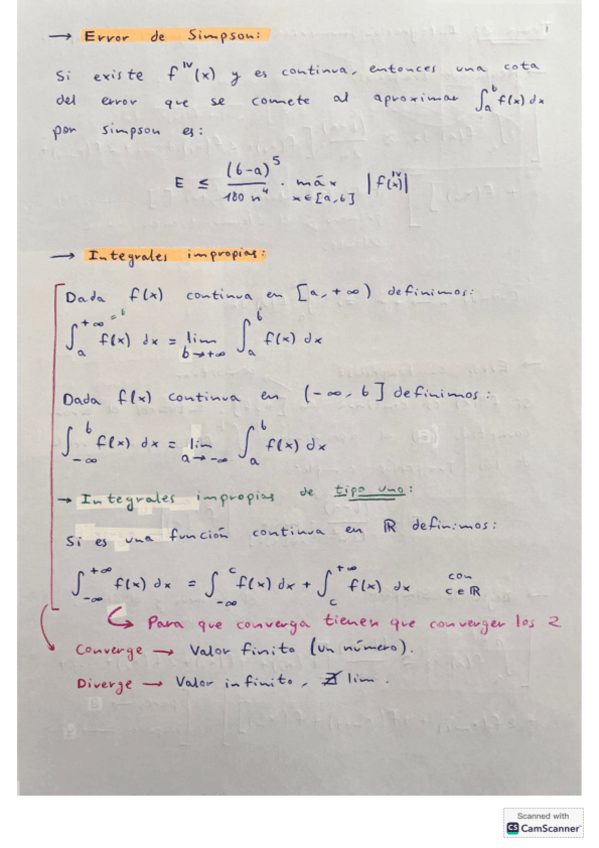 → Error de Simpson:
Si existe f^IV(x) y es continua, entonces una cota
del error que se comete al aproximar ∫_a^b f(x) dx
por Simpson es:
E ≤ (b-a)^5 / 180 n^4 · máx_{x∈[a,b]} |f^IV(x)|
→ Integrales impropias:
Dada f(x) continua en [a, +∞) definimos:
∫_a^{+∞} f(x) dx = lim_{b→+∞} ∫_a^b f(x) dx
Dada f(x) continua en (-∞, b] definimos:
∫_{-∞}^b f(x) dx = lim_{a→-∞} ∫_a^b f(x) dx
→ Integrales impropias de tipo uno:
Si es una función continua en ℝ definimos:
∫_{-∞}^{+∞} f(x) dx = ∫_{-∞}^c f(x) dx + ∫_c^{+∞} f(x) dx con c∈ℝ
Para que converga tienen que converger los 2
Converge → Valor finito (un número).
Diverge → Valor infinito, ∄ lim.
Scanned with
CS CamScanner